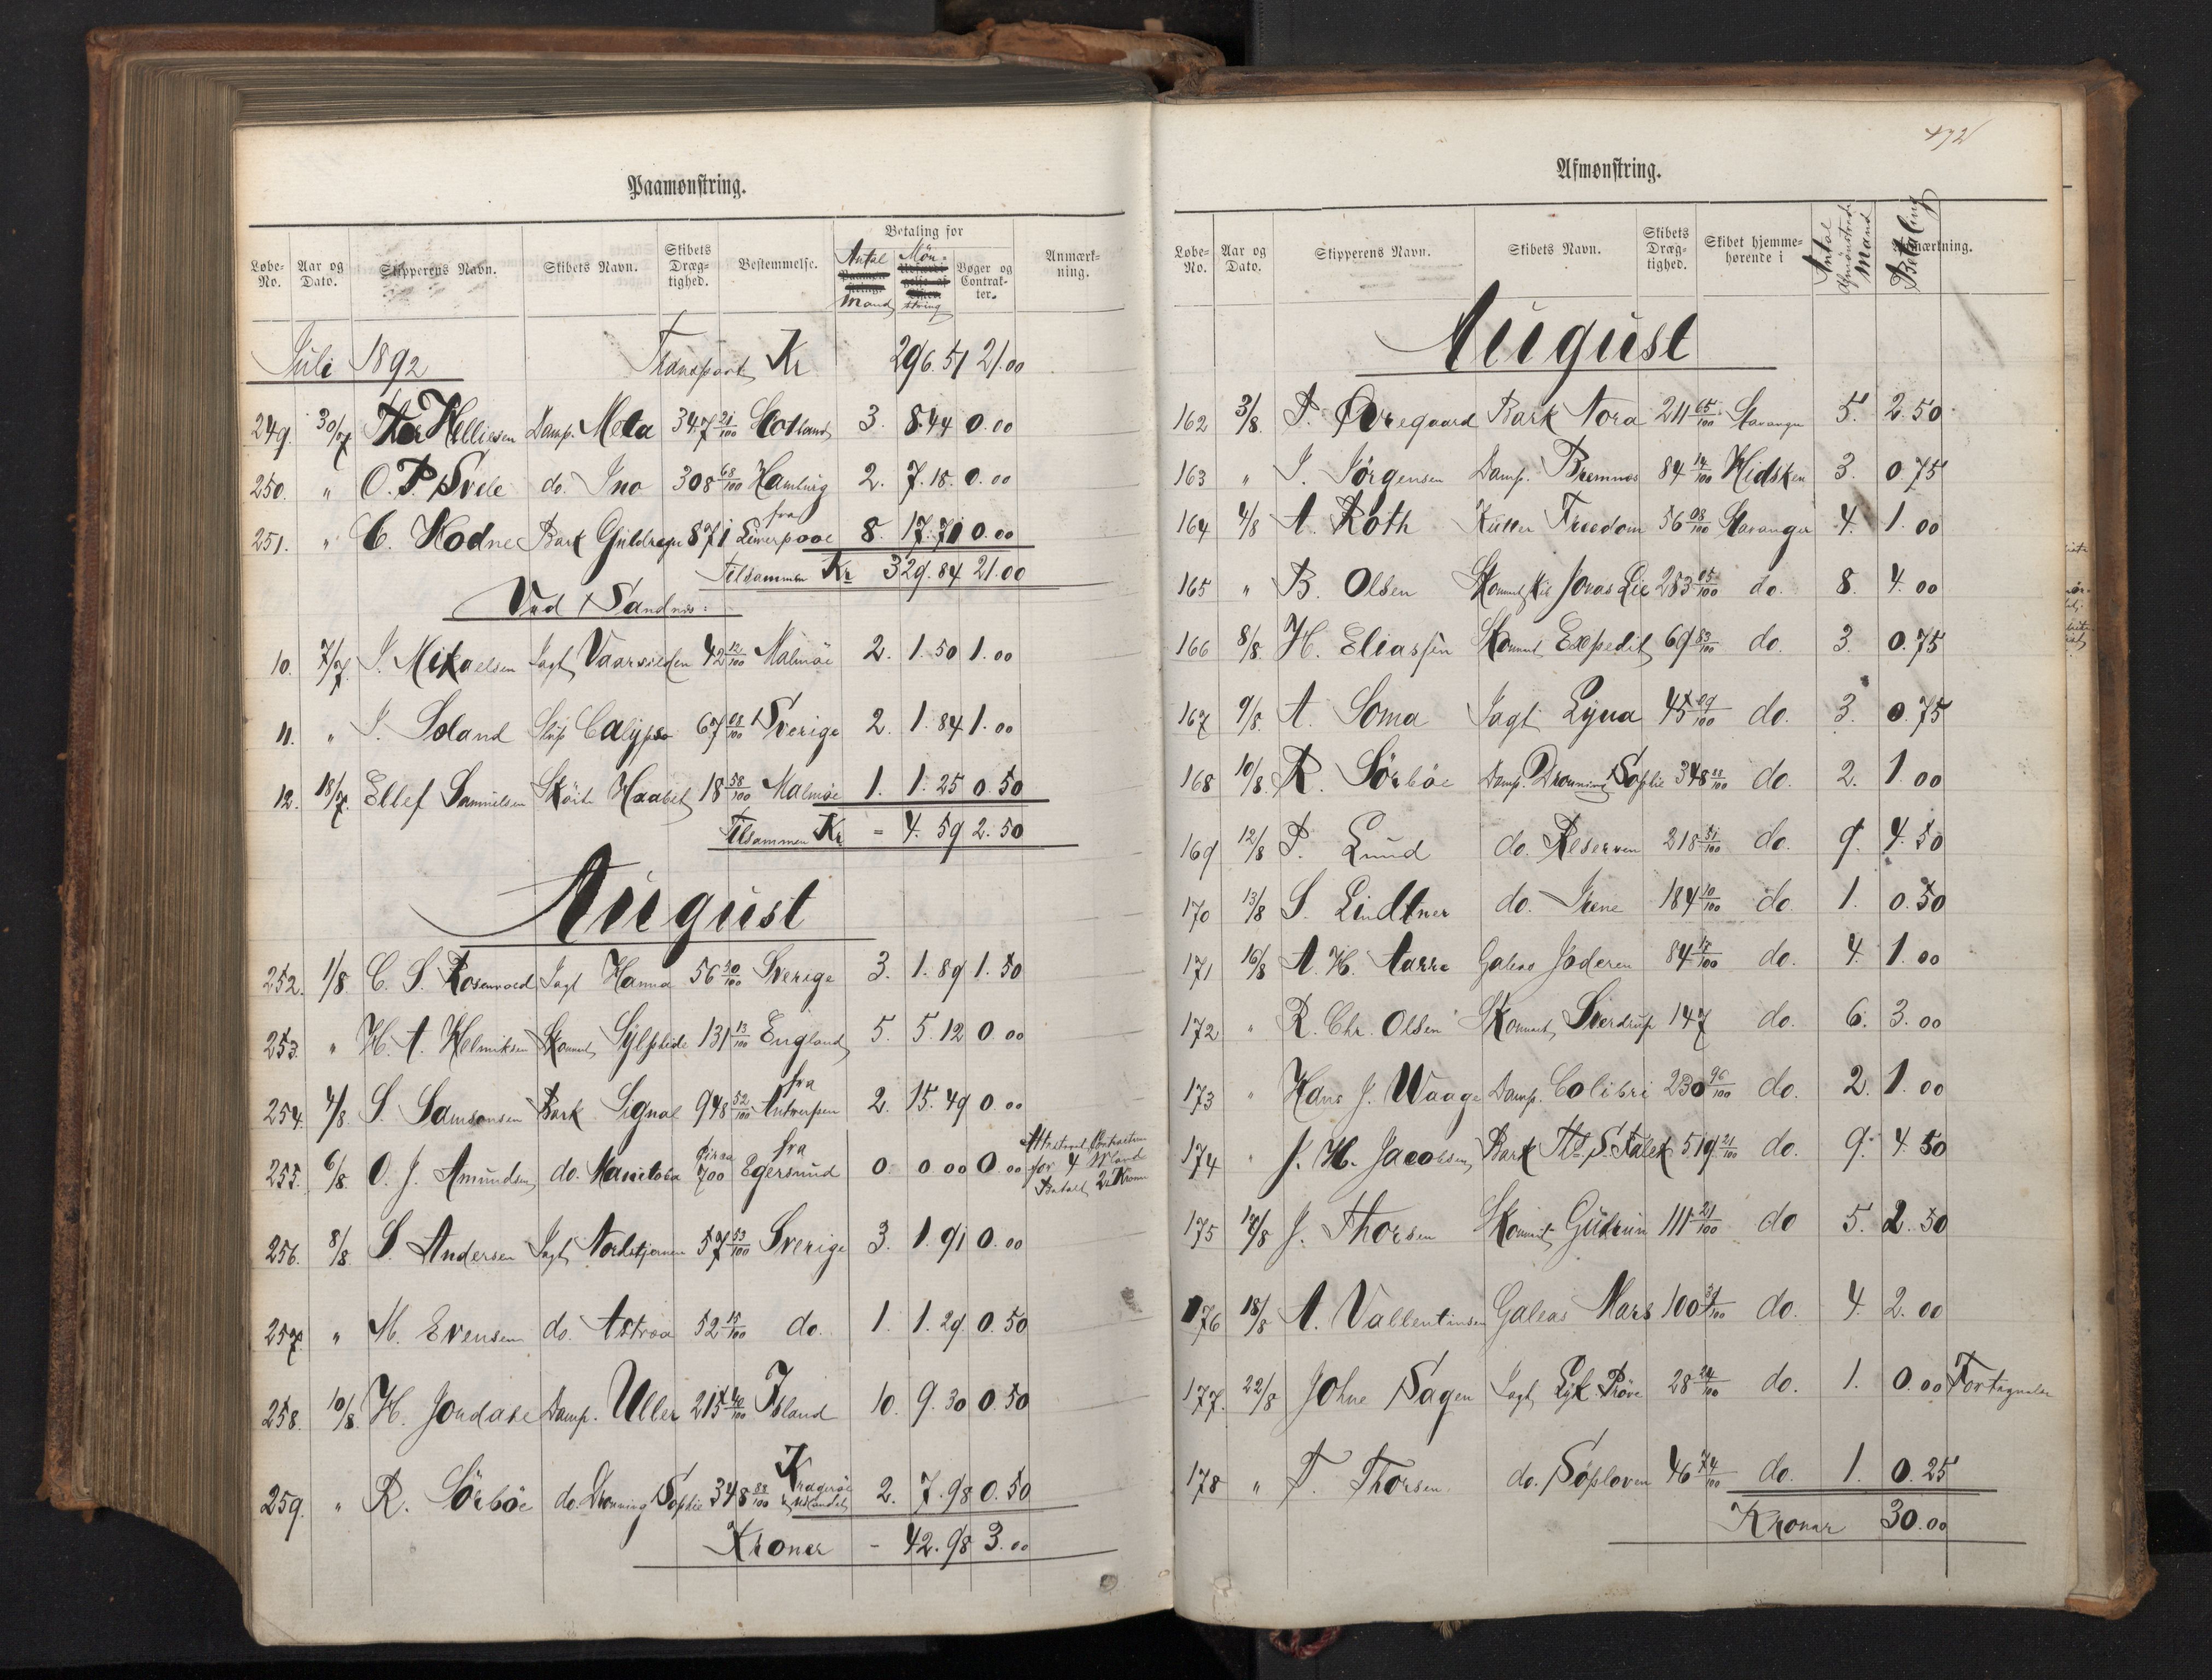 Paamønstring.
Løbe-No. Aar og Dato. Skipperens Navn. Skibets Navn. Skibets Dræg-tighed. Bestemmelse. Betaling for Antal Mand Møn-string Bøger og Contrak-ter. Anmærk-ning.
Juli 1892 Transport Kr 296.51 21.00
249. 30/7 Helliesen Damp. Meta 347 21/100 3. 8.44 0.00
250. " O. P. Svele do. Ino 308 68/100 Hamburg 2. 7.18. 0.00
251. " C. Hodne Bark Guldregn 871 fra Liverpool 8. 17.71 0.00
Tilsammen Kr 329.84 21.00
Ved Sandnes:
10. 7/7 J. Mikaelsen Jagt Vaarsilden 42 12/100 Malmöe 2. 1.50 1.00
11. " J. Soland Slup Calypso 67 08/100 Sverige 2. 1.84 1.00
12. 18/7 Ellef Samuelsen Sköite Haabet 18 58/100 Malmöe 1. 1.25 0.50
Tilsammen Kr - 4.59 2.50
August
252. 1/8. C. S. Rosenvold Jagt Hanna 56 30/100 Sverige 3. 1.89 1.50
253. " H. A. Helmiksen Skonnert Sylphide 131 13/100 England 5. 5.12 0.00
254. 4/8. S. Samsonsen Bark Signal 948 52/100 fra Antwerpen 2. 15.49 0.00
255. 6/8. O. J. Amundsen do. Manitoba circa 700 fra Egersund 0. 0.00 0.00 for 4 Mand Betalt 2 Kroner
256. 8/8. S. Andersen Jagt Nordstjernen 57 53/100 Sverige 3. 1.91 0.00
257. " M. Evensen do. Astræa 52 15/100 do. 1. 1.29 0.50
258. 10/8. H. Jordahl Damp. Uller 215 40/100 Island 10. 9.30 0.50
259. " R. Sörböe do. Dronning Sophie 348 88/100 Kragerøe & Udlandet 2. 7.98 0.50
Kroner - 42.98 3.00
472
Afmønstring.
Løbe-No. Aar og Dato. Skipperens Navn. Skibets Navn. Skibets Dræg-tighed. Skibet hjemme-hørende i Antal Afmønstrede Mand Betaling Anmærkning.
August
162 3/8. P. Øvregaard Bark Nora 211 65/100 Stavanger 5. 2.50
163 " J. Jörgensen Damp. Bremnes 84 14/100 Hidsken 3. 0.75
164 4/8 A. Roth Kutter Freedom 56 08/100 Stavanger 4. 1.00
165 " B. Olsen Skonnertskib Jonas Lie 283 05/100 do. 8. 4.00
166 8/8. H. Eliassen Skonnert Expedit 69 83/100 do. 3. 0.75
167 9/8. A. Soma Jagt Lyna 45 09/100 do. 3. 0.75
168 10/8. R. Sörböe Damp. Dronning Sophie 348 88/100 do. 2. 1.00
169 12/8 P. Lund do. Reserven 218 51/100 do. 9. 4.50
170 13/8 S. Lindtner do. Irene 184 10/100 do. 1. 0.50
171 16/8 A. H. Aarre Galeas Jæderen 84 17/100 do. 4. 1.00
172 " R. Chr. Olsen Skonnert Sverdrup 147 do. 6. 3.00
173 " Hans J. Waage Damp. Colibri 230 96/100 do. 2. 1.00
174 " J. H. Jacobsen Bark Th. S. Falck 519 21/100 do. 9. 4.50
175 17/8 J. Thorsen Skonnert Gudrun 111 21/100 do 5. 2.50
176 18/8 A. Vallentinsen Galeas Mars 100 31/100 do. 4. 2.00
177. 22/8 Johne Sagen Jagt Lyk Pröve 28 24/100 do. 1. 0.00
178 " T. Thorsen do. Söploven 46 74/100 do. 1. 0.25
Kroner 30.00